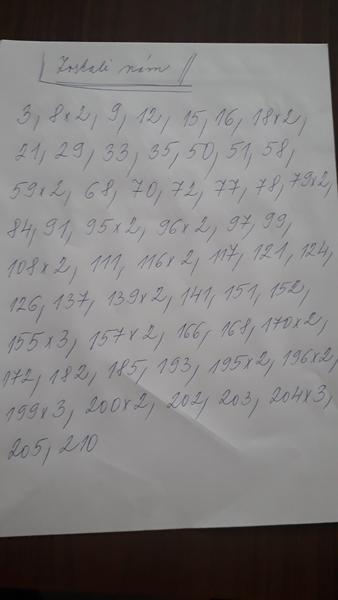 Zostali nám
3, 8x2, 9, 12, 15, 16, 18x2,
21, 29, 33, 35, 50, 51, 58,
59x2, 68, 70, 72, 77, 78, 79x2,
84, 91, 95x2, 96x2, 97, 99,
108x2, 111, 116x2, 117, 121, 124,
126, 137, 139x2, 141, 151, 152,
155x3, 157x2, 166, 168, 170x2,
172, 182, 185, 193, 195x2, 196x2,
199x3, 200x2, 202, 203, 204x3,
205, 210